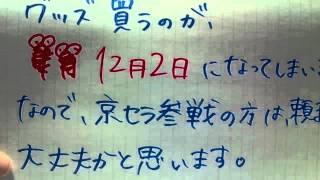 グッズ買うのが、
12月2日になってしまい
なので、京セラ参戦の方は、頼
大丈夫かと思います。